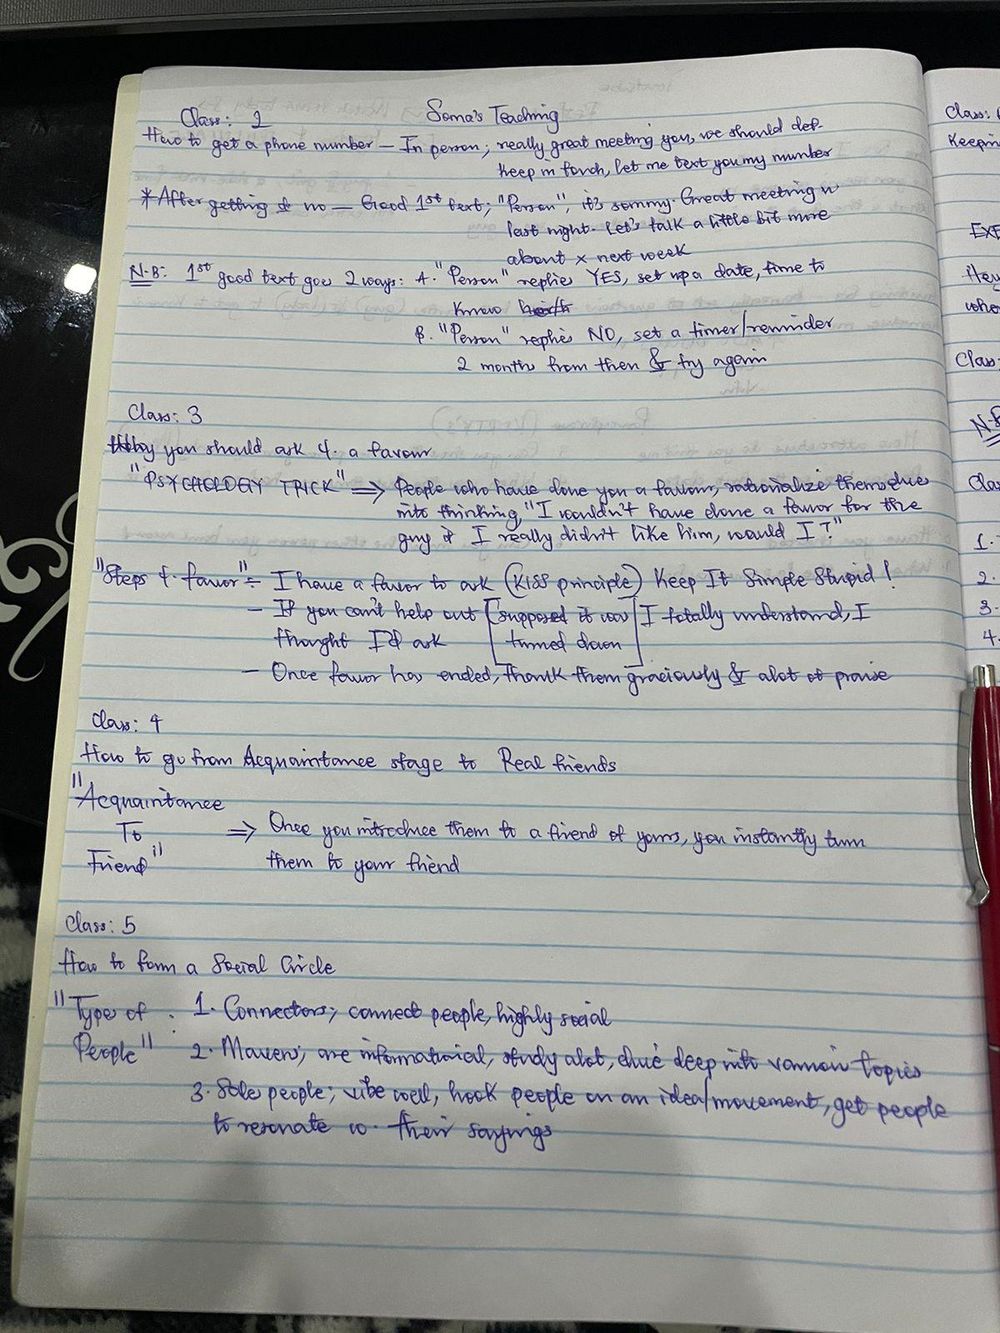 Class: 2 Soma's Teaching
How to get a phone number – In person; really great meeting you, we should def
Keep in touch, let me text you my number
*After getting no – Good 1st text; "Person", it's sommy. Great meeting u
last night. Let's talk a little bit more
about x next week
N.B: 1st good text goes 2 ways: A. "Person" replies YES, set up a date, time to
know
B. "Person" replies NO, set a timer/reminder
2 months from then & try again
Class: 3
Why you should ask 4. a favour
"PSYCHOLOGY TRICK" => People who have done you a favour, rationalize themselves
into thinking, "I wouldn't have done a favor for the
guy if I really didn't like him, would I?"
"Steps 4. favor" = I have a favor to ask (KISS principle) Keep It Simple Stupid!
– If you can't help out [supposed it was I totally understand, I
thought I'd ask turned down]
– Once favor has ended, thank them graciously & alot of praise
Class: 4
How to go from Acquaintance stage to Real friends
"Acquaintance
To => Once you introduce them to a friend of yours, you instantly turn
Friend" them to your friend
Class: 5
How to form a Social Circle
"Type of : 1. Connectors; connect people, highly social
People" 2. Mavens; are informational, study alot, dive deep into various topics
3. Sales people; vibe well, hook people on an idea/movement, get people
to resonate w. their sayings
Class:
Keepin
EXE
Hey
who
Class:
N.B
Clas
1.
2.
3.
4.